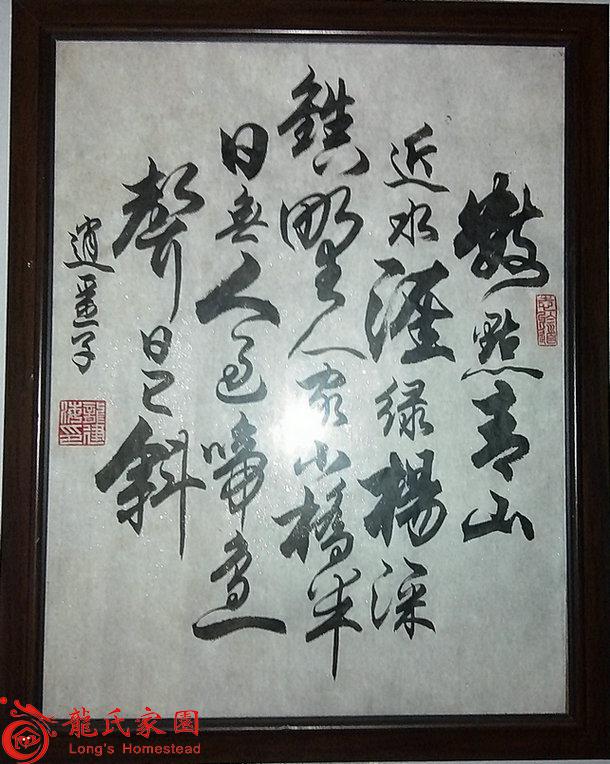 數點青山
近水涯綠楊深
鎖野人家小橋半
日無人過啼鳥一
聲日已斜
逍遙子
龍氏家園
Long's Homestead